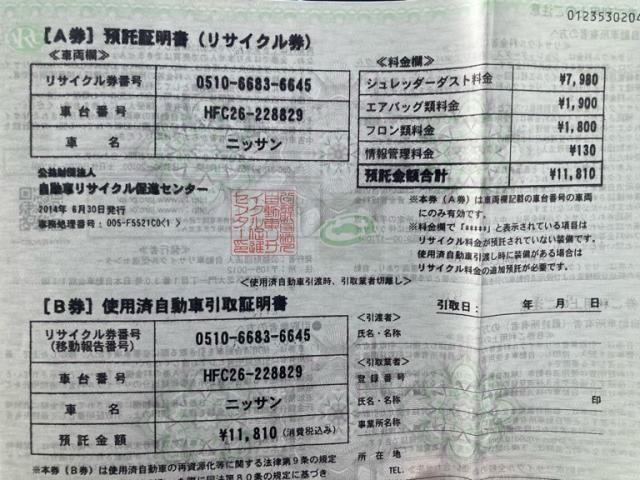 0123530204
[A券] 預託証明書(リサイクル券)
≪車両欄≫
リサイクル券番号 0510-6683-6645
車台番号 HFC26-228829
車名 ニッサン
≪料金欄≫
シュレッダーダスト料金 ¥7,980
エアバッグ類料金 ¥1,900
フロン類料金 ¥1,800
情報管理料金 ¥130
預託金額合計 ¥11,810
公益財団法人
自動車リサイクル促進センター
2014年 6月30日発行
事務処理番号:005-F5521C0<1>
※本券(A券)は車両欄記載の車台番号の車両
にのみ有効です。
※料金欄で「*****」と表示されている項目は
リサイクル料金が預託されていない装備です。
使用済自動車引渡し時に装備がある場合は
リサイクル料金の追加預託が必要です。
<使用済自動車引渡時、引取業者切離し>
[B券] 使用済自動車引取証明書
引取日: 年 月 日
リサイクル券番号
(移動報告番号) 0510-6683-6645
車台番号 HFC26-228829
車名 ニッサン
預託金額 ¥11,810 (消費税込み)
<引渡者>
氏名・名称
<引取業者>
登録番号
氏名・名称 印
事業所名称
所在地
TEL.
※本券(B券)は使用済自動車の再資源化等に関する法律第9条の規定